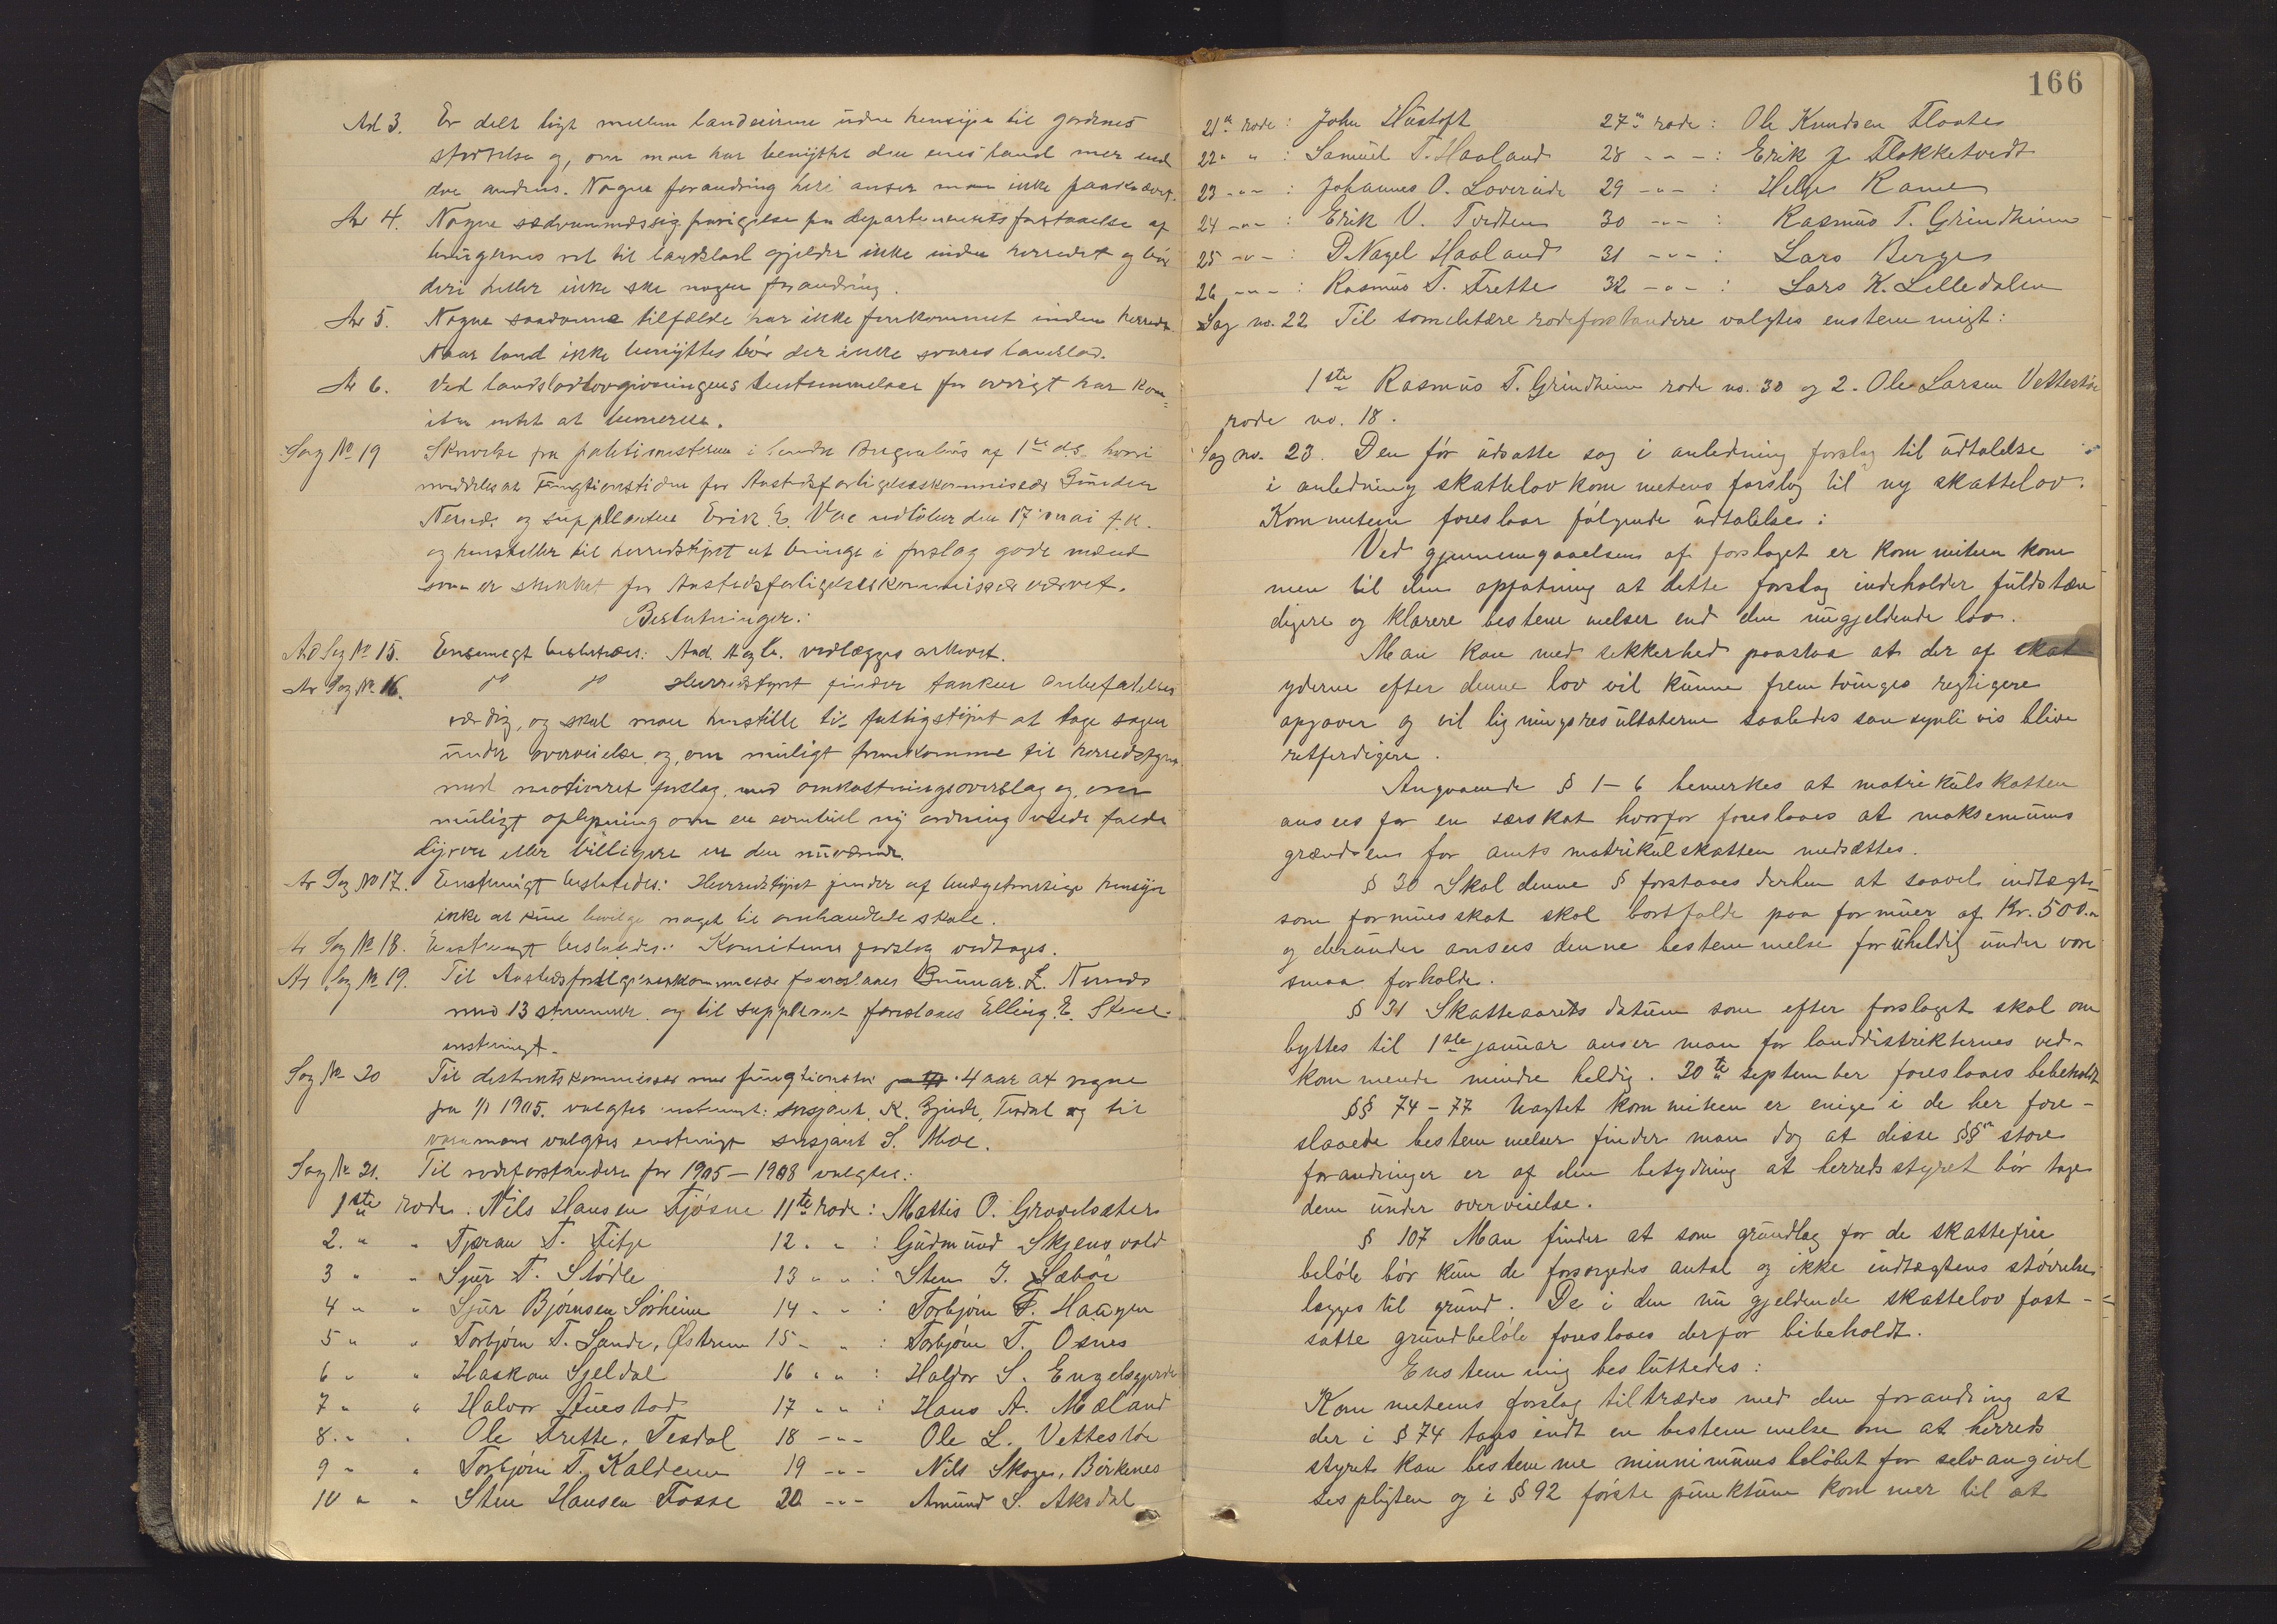 Ad 3. Er delt ligt mellem landeierne uden hensyn til gardenes
størrelse og, om man har benyttet den enes land mer end
den andens. Nogen forandring heri anser man ikke paakrævet.
Ad 4. Nogen sedvanemæssig
brugernes ret til landslod gjelder ikke inden herredet og bør
deri heller ikke ske nogen forandring.
Ad 5. Nogne saadanne tilfælde har ikke forekommet inden herredet
Naar land ikke benyttes bør der ikke svares landslod.
Ad 6. Ved landslodlovgivningens bestemmelser for øvrigt har kom=
iteen intet at bemerke.
Sag No 19 Skrivelse fra politimesteren i søndre Bergenhus af 1ste ds. hvori
meddeles at Fungtionstiden for Anstedsforligelseskommissær Gunnar
Nernes og supplanten Erik E. Vee udløber den 17 mai f.k.
og henstiller til herredstyret at bringe i forslag gode mænd
som er skikket for Anstedsforligelseskommissær vervet.
Beslutninger:
Ad Sag No 15. Enstemigt besluttedes: And. A og B. vedlægges arkivet.
Ad Sag No 16. do do Herredstyret finder tanken anbefalelses
værdig, og skal man henstille til fattigstyret at tage sagen
under overveielse og, om muligt fremkomme til herredstyret
med motiveret forslag, med omkostningsoverslag og, om
muligt oplysning om en eventuel ny ordning vilde falde
dyrere eller billigere en den nuværende.
Ad Sag No 17. Enstemigt besluttedes: Herredstyret finder af budgetmæssige hensyn
ikke at kune bevilge noget til omhandlede skole.
Ad Sag No 18. Enstemigt besluttedes: Komiteens forslag vedtages.
Ad Sag No 19. Til Anstedsforligelseskommissær foreslaaes Gunnar L. Nernes
med 13 stemmer og til supplant foreslaaes Elling E.
enstemigt.
Sag No 20 Til distriktskommissær med fungtionstid 4 aar at regne
fra 1/1 1905. valgtes enstemigt: sersjant K. Gjerde, Tesdal og til
varamand valgtes enstemigt sersjant S. Moe.
Sag No 21. Til rodeforstandere for 1905 – 1908 valgtes:
1ste rode. Nils Hansen Tjøsne 11te rode: Mattis O. Gravelsæter
2. " " Tjæran T. Fitje 12. " : Gudmund Skjensvold
3 " " Sjur T. Stødle 13 " " : Sten J. Sæbøe
4 " " Sjur Bjørnsen Sørheim 14 " " : Torbjørn F. Haugen
5 " " Torbjørn T. Sande, Østrem 15 " " : Torbjørn T. Osnes
6 " " Haakon Sjeldal 16 " " : Haldor S. Engelsgjerde
7 " " Halvor Auestad 17 " " : Hans A. Mæland
8. " " Ole Frette, Tesdal 18 - " - Ole L. Vettestøe
9 " " Torbjørn T. Kaldeim 19 - " - Nils Skoge, Børkenes
10 " " Sten Hansen Fosse 20 - " - Amund S. Aksdal
166
21de rode : John Hustoft 27de rode : Ole Knudsen Flaates
22 " " : Samuel T. Haaland 28 - " - : Erik J. Flokketvedt
23 - " - : Johannes O. Løvereide 29 - " - : Helge Rame
24 - " - : Erik V. Tvedten 30 - " - : Rasmus T. Grindheim
25 - " - : D. Nagel Haaland 31 - " - : Lars Berge
26 - " - : Rasmus T. Frette 32 - " - : Lars K. Lilledalen
Sag no. 22 Til somilitære rodeforstandere valgtes enstemmigt:
1ste Rasmus T. Grindheim rode no. 30 og 2. Ole Larsen Vettestøe
rode no. 18.
Sag no. 23. Den før udsatte sag i anledning forslag til udtalelse
i anledning skattelovkommiteens forslag til ny skattelov.
Kommiteen foreslaar følgende udtalelse:
Ved gjennemgaaelsen af forslaget er kommiteen kom
men til den opfatning at dette forslag indeholder fuldstæn
digere og klarere bestemmelser end den nugjeldende lov.
Man kan med sikkerhed paastaa at der af skat
yderne efter denne lov vil kunne fremtvinges regtigere
opgaver og vil ligningsresultaterne saaledes sansynlivis blive
retferdigere.
Angaaende § 1 – 6 bemerkes at matrikulskatten
ansees for en særskat hvorfor foreslaaes at maksemums
grændsen for amts matrikulskatten nedsættes.
§ 30 Skal denne § forstaaes derhen at saavel indtægts–
som formuesskat skal bortfalde paa formuer af Kr. 500.00
og derunder ansees denne bestemmelse for uheldig under vore
smaa forholde.
§ 31 Skatteaarets datum som efter forslaget skal om
byttes til 1ste januar anser man for landdistrikternes ved-
kommende mindre heldig. 30te september foreslaaes bibeholdt
§§ 74 – 77 Uagtet kommiteen er enige i de her fore-
slaaede bestemmelser finder man dog at disse §§'s store
forandringer er af den betydning at herredsstyret bør tage
dem under overveielse.
§ 107 Man finder at som grundlag for de skattefrie
beløb bør kun de forsørgedes antal og ikke indtægtens størrelse
lægges til grund. De i den nu gjeldende skattelov fast-
satte grundbeløb foreslaaes derfor bibeholdt.
Enstemmig besluttedes:
Kommiteens forslag tiltrædes med den forandring at
der i § 74 tages indt en bestemmelse om at herreds
styret kan bestemme minnimumsbeløbet for selvangivel
sespligten og i § 92 første punktum kommer til at